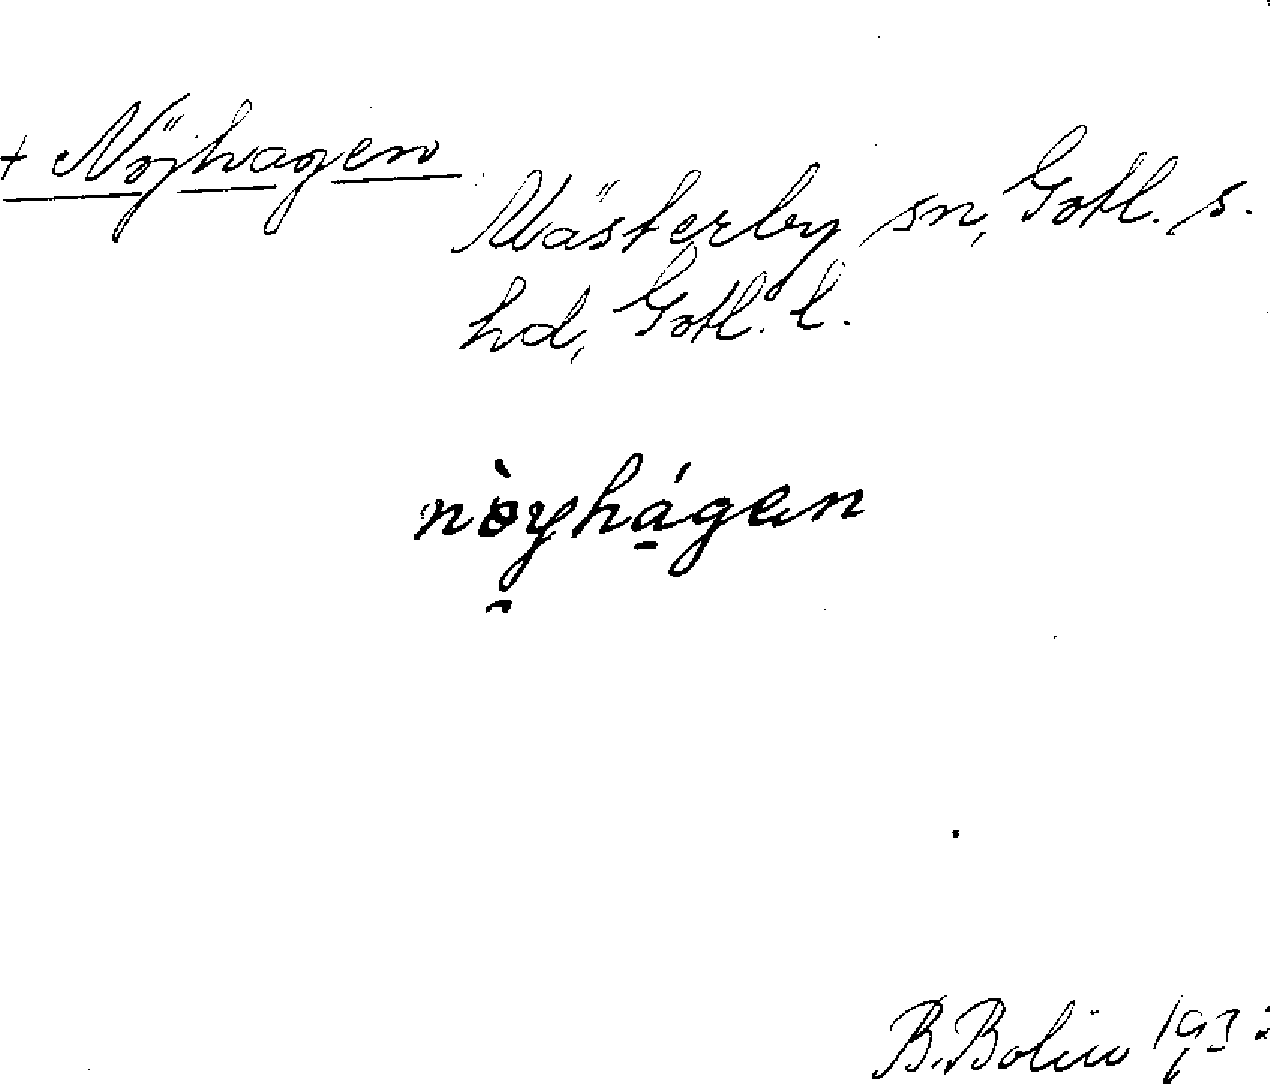 + Nöjhagen
Västerby sn, Gotl. s.
hd, Gotl. l.
nòyhágen
B. Bolin